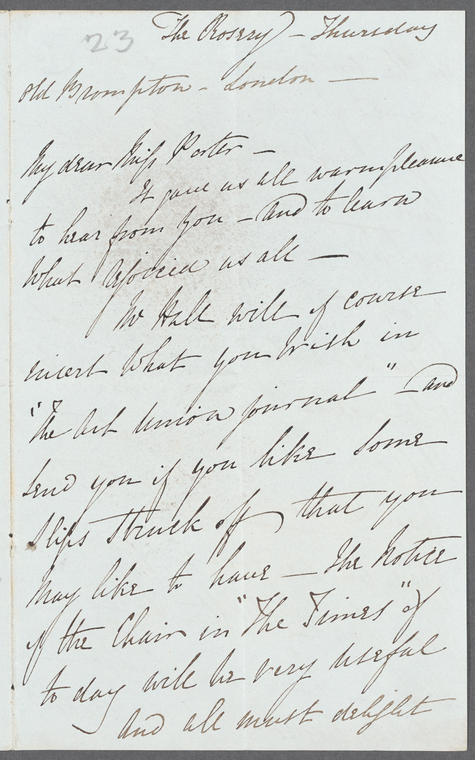 23
The Rosery - Thursday
Old Brompton - London -
My dear Miss Porter -
It gave us all warm pleasure
to hear from you - and to learn
what rejoiced us all -
Mr Hall will of course
insert what you wish in
"The Art Union journal" - and
send you if you like some
slips struck off that you
may like to have - The Notice
of the Chair in "The Times" of
to day will be very useful
and all must delight